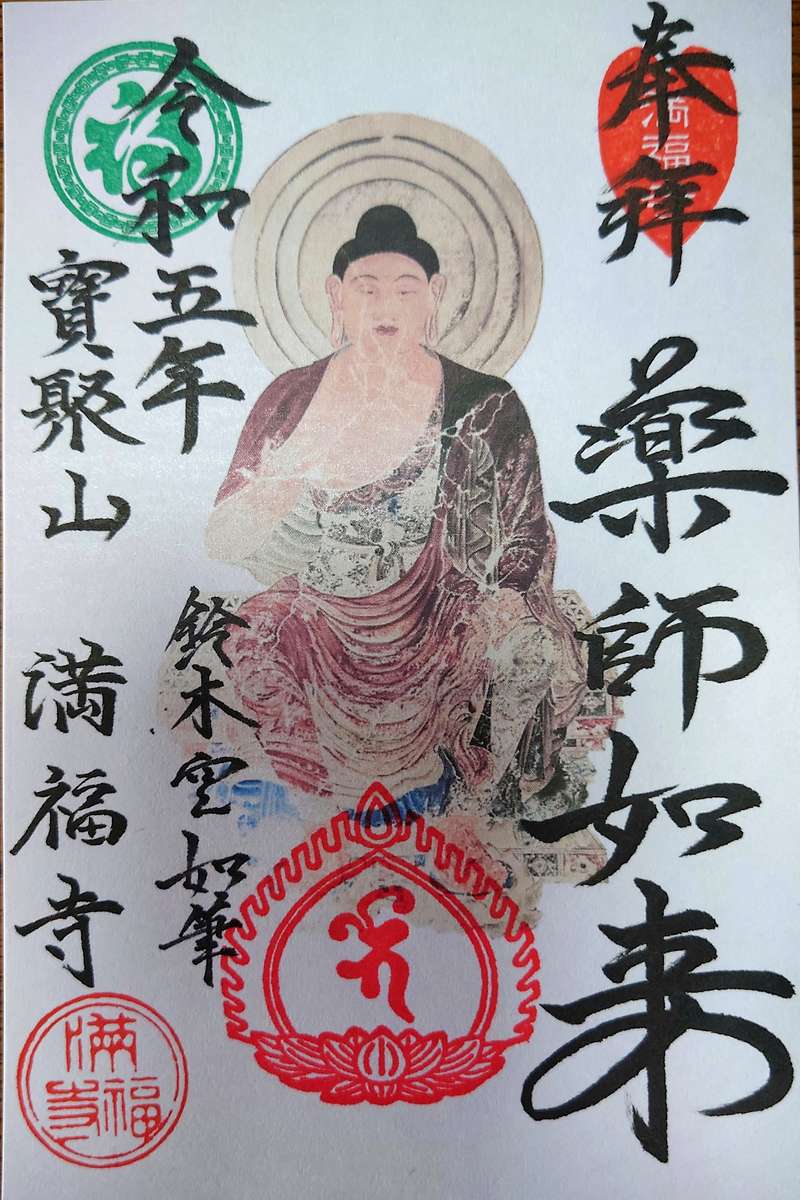 奉拝
満福
薬師如来
令和五年
福
鈴木空如筆
寶聚山 満福寺
満福寺